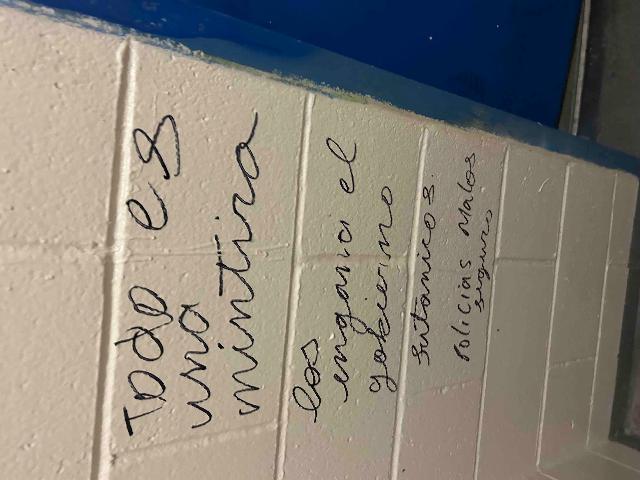 Todo es
una
mintira
los
engana el
gobierno
satanicos.
Policias Malos
seguro